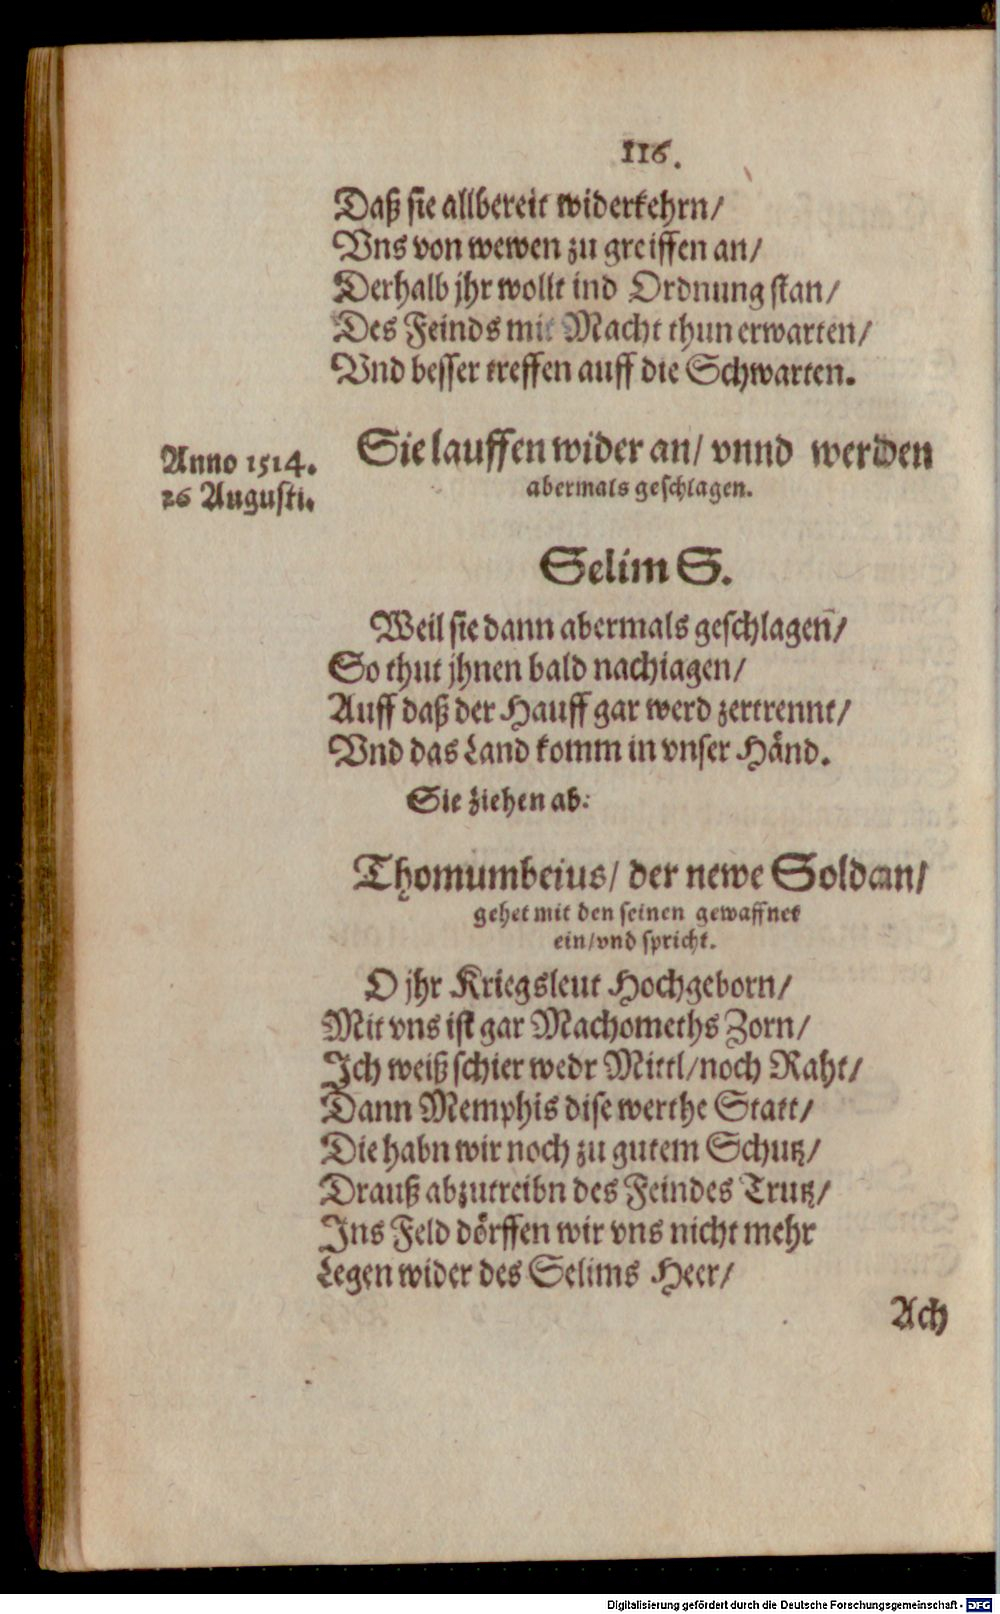 116.
Daß sie allbereit widerkehrn/
Vns von wewen zu greiffen an/
Derhalb jhr wollt ind Ordnung stan/
Des Feinds mit Macht thun erwarten/
Vnd besser treffen auff die Schwarten.
Anno 1514.
26 Augusti.
Sie lauffen wider an/ vnnd werden
abermals geschlagen.
Selim S.
Weil sie dann abermals geschlagen̄/
So thut jhnen bald nachiagen/
Auff daß der Hauff gar werd zertrennt/
Vnd das Land komm in vnser Händ.
Sie ziehen ab:
Thomumbeius/ der newe Soldan/
gehet mit den seinen gewaffnet
ein/vnd spricht.
O jhr Kriegsleut Hochgeborn/
Mit vns ist gar Machomeths Zorn/
Ich weiß schier wedr Mittl/noch Raht/
Dann Memphis dise werthe Statt/
Die habn wir noch zu gutem Schutz/
Drauß abzutreibn des Feindes Trutz/
Ins Feld dörffen wir vns nicht mehr
Legen wider des Selims Heer/
Ach
Digitalisierung gefördert durch die Deutsche Forschungsgemeinschaft - DFG